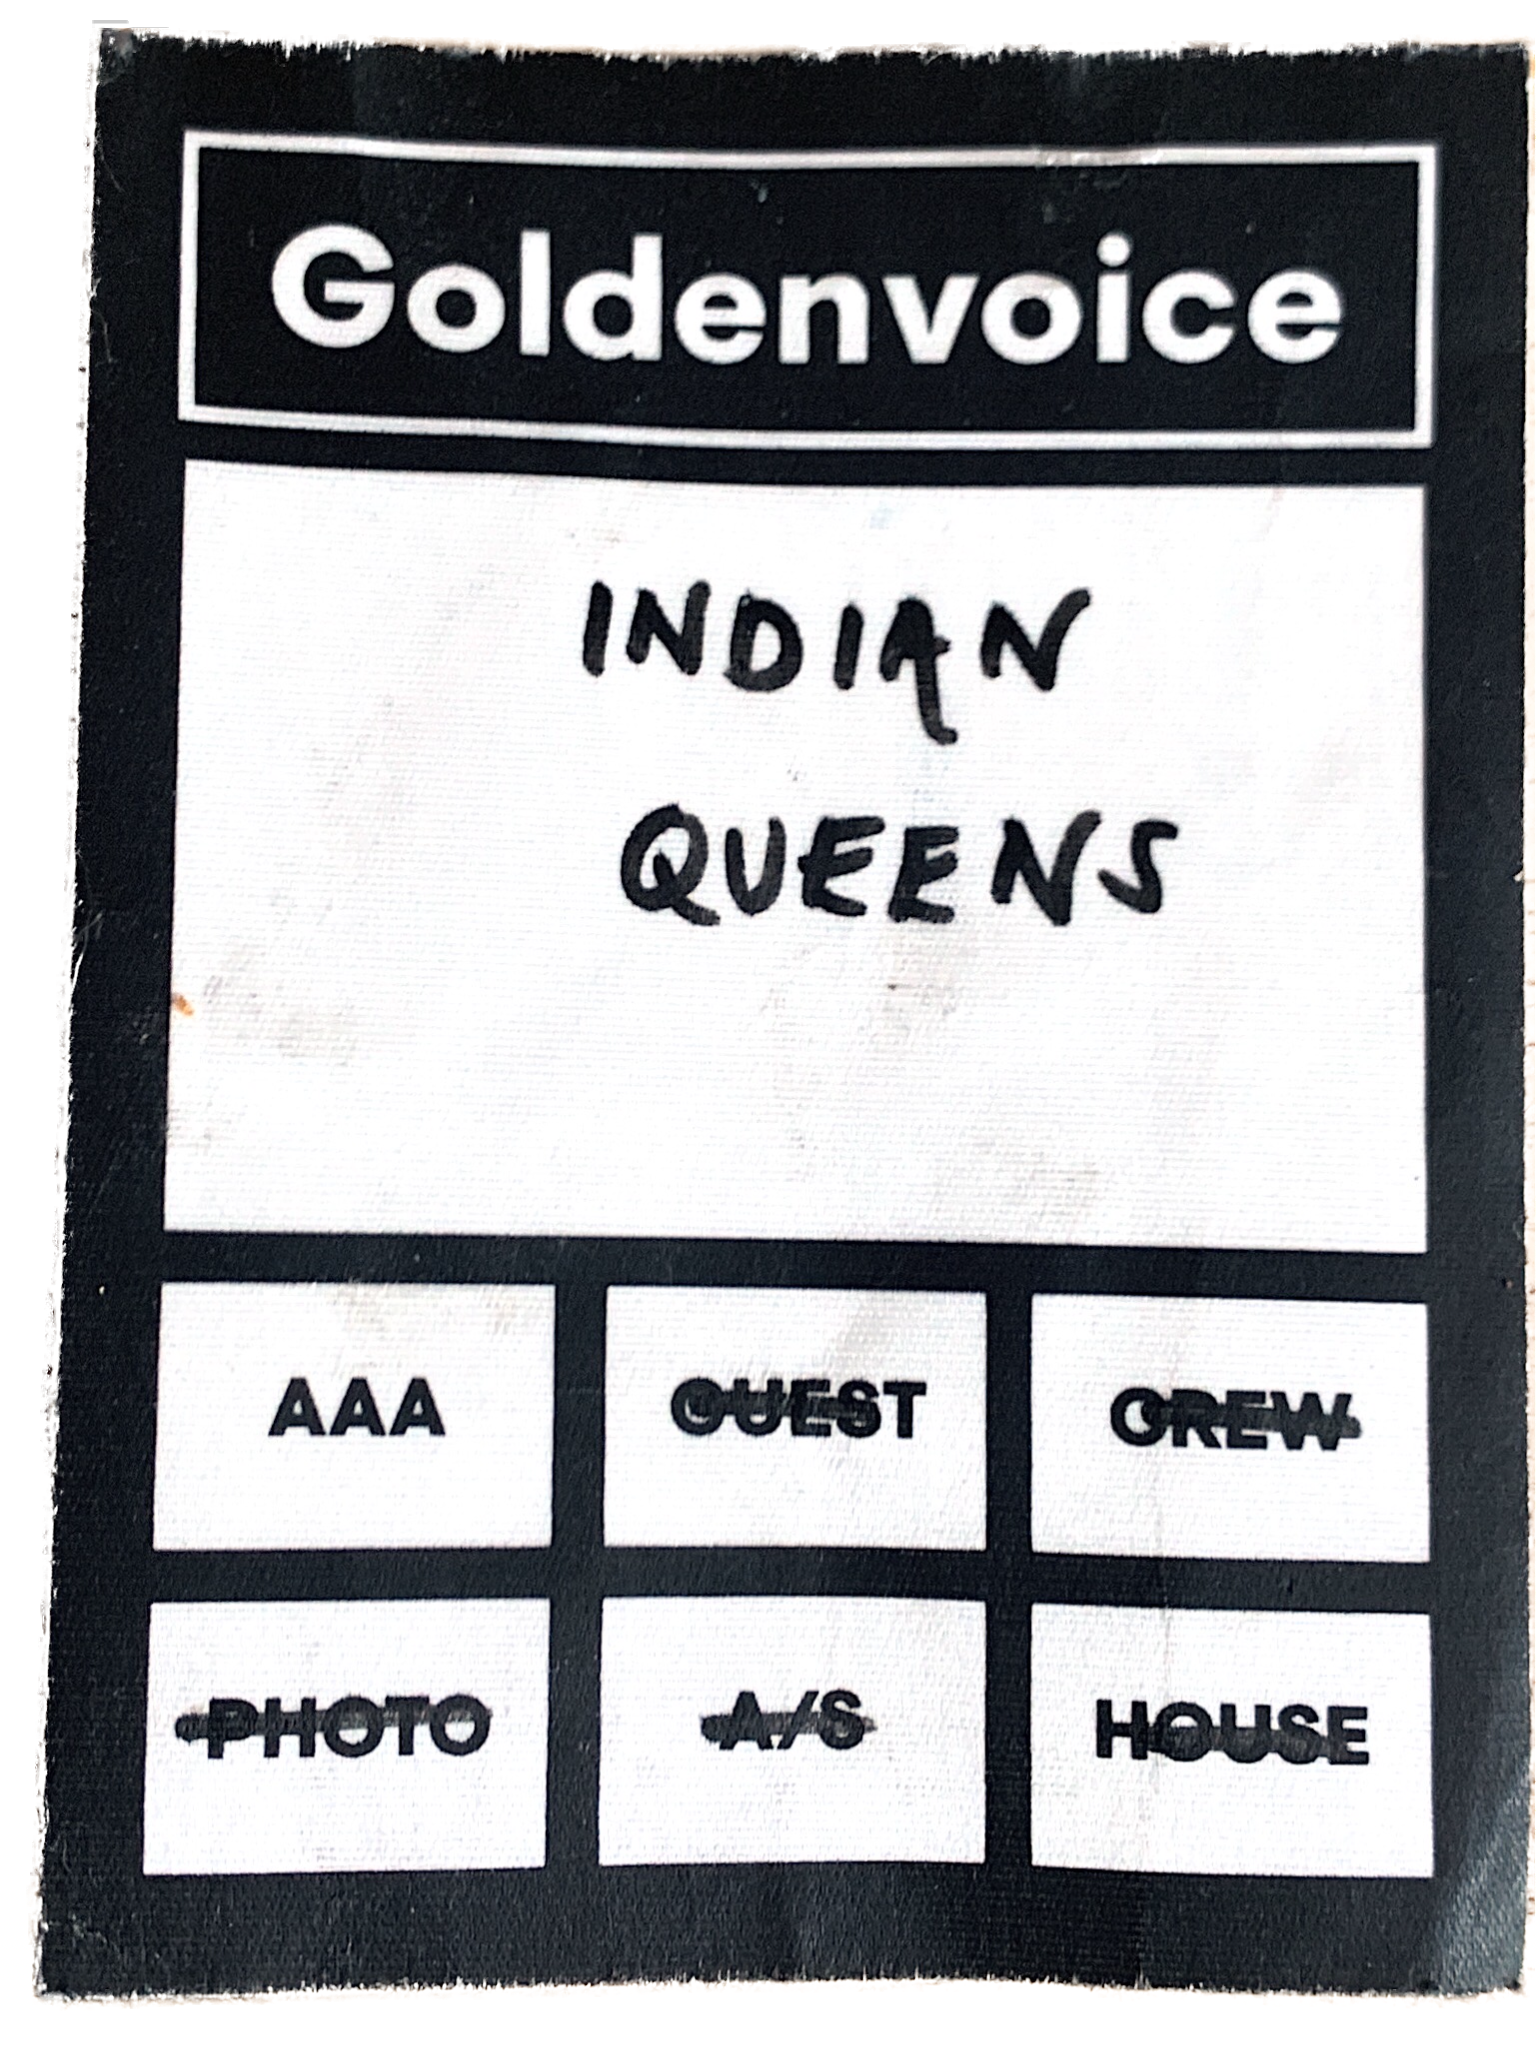 Goldenvoice
INDIAN
QUEENS
AAA GUEST CREW
PHOTO A/S HOUSE